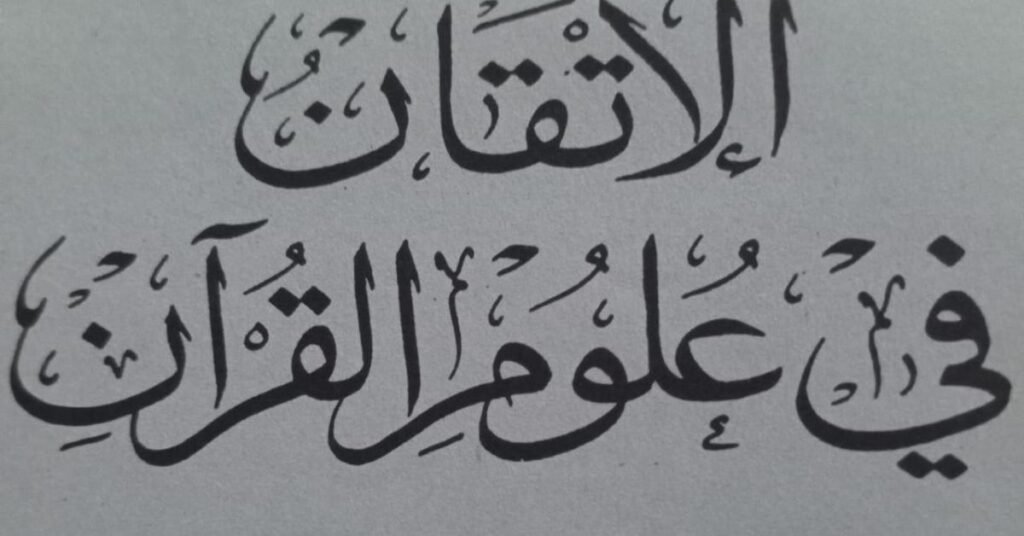 الإتْقَانُ
في عُلُومِ القُرْآنِ